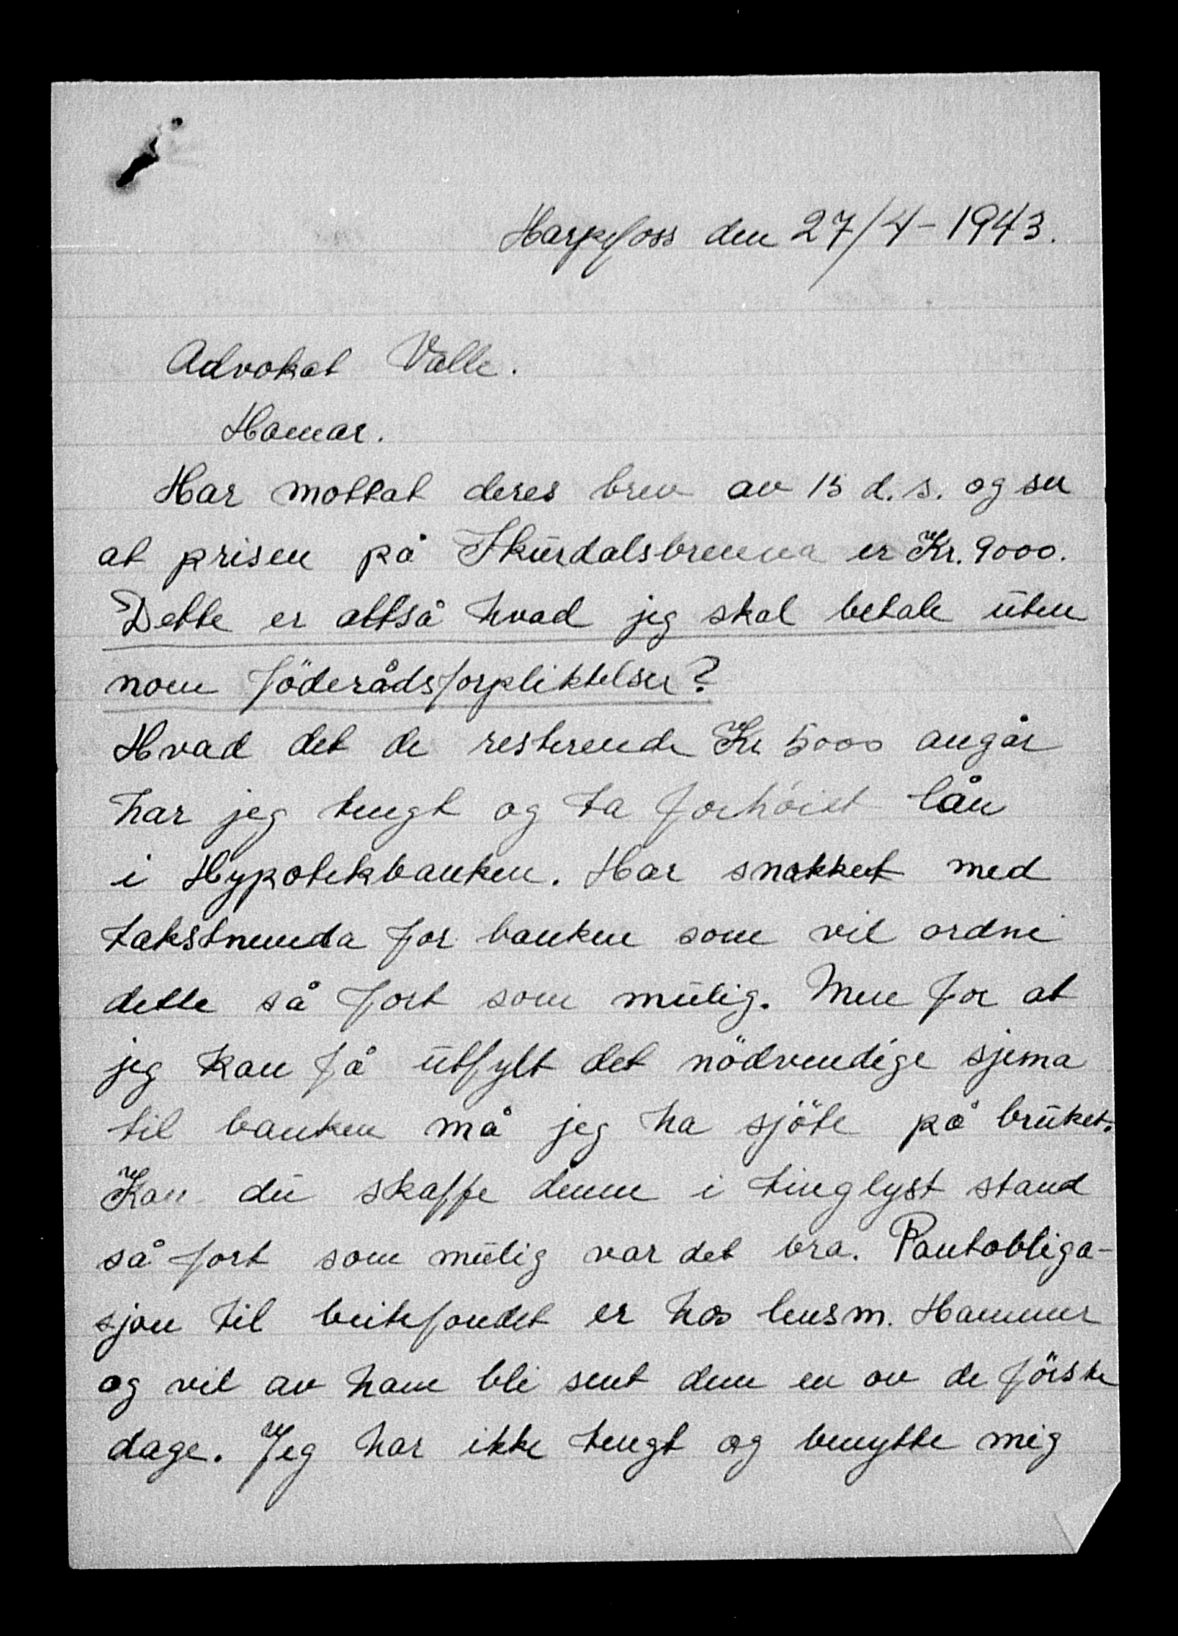 Harpefoss den 27/4-1943.
Advokat Valle.
Hamar.
Har mottat deres brev av 15 d.s. og ser
at prisen på Skurdalsbrenna er Kr. 9000.
Dette er altså hvad jeg skal betale uten
nom föderådsforpliktelser?
Hvad det de resterende Kr 5000 angår
har jeg tengt og ta forhöiet lån
i Hypotekbanken. Har snakket med
takstnemda for banken som vil ordne
dette så fort som mulig. Men for at
jeg kan få utfylt det nödvendige sjema
til banken må jeg ha sjöte på bruket.
Kan du skaffe denne i tinglyst stand
så fort som mulig var det bra. Pantobliga-
sjon til beitefondet er hos lensm. Hammer
og vil av ham bli sent dem en av de förste
dage. Jeg har ikke tengt og benytte mig